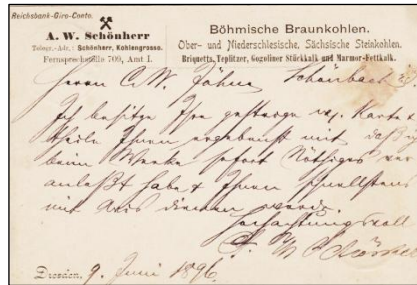 Reichsbank-Giro-Conto.
A. W. Schönherr
Telegr.-Adr.: Schönherr, Kohlengrosso.
Fernsprechstelle 709, Amt I.
Böhmische Braunkohlen.
Ober- und Niederschlesische, Sächsische Steinkohlen.
Briquetts, Teplitzer, Gogoliner Stückkalk und Marmor-Fettkalk.
Herrn C. W.
Ich besitze Ihre gestrige Karte &
theile Ihnen ergebenst mit daß ich
beim Werke sofort Nöthiges ver
anlaßt habe & Ihnen schnellstens
mit Avis dienen werde.
Hochachtungsvoll
Dresden, 9. Juni 1896.